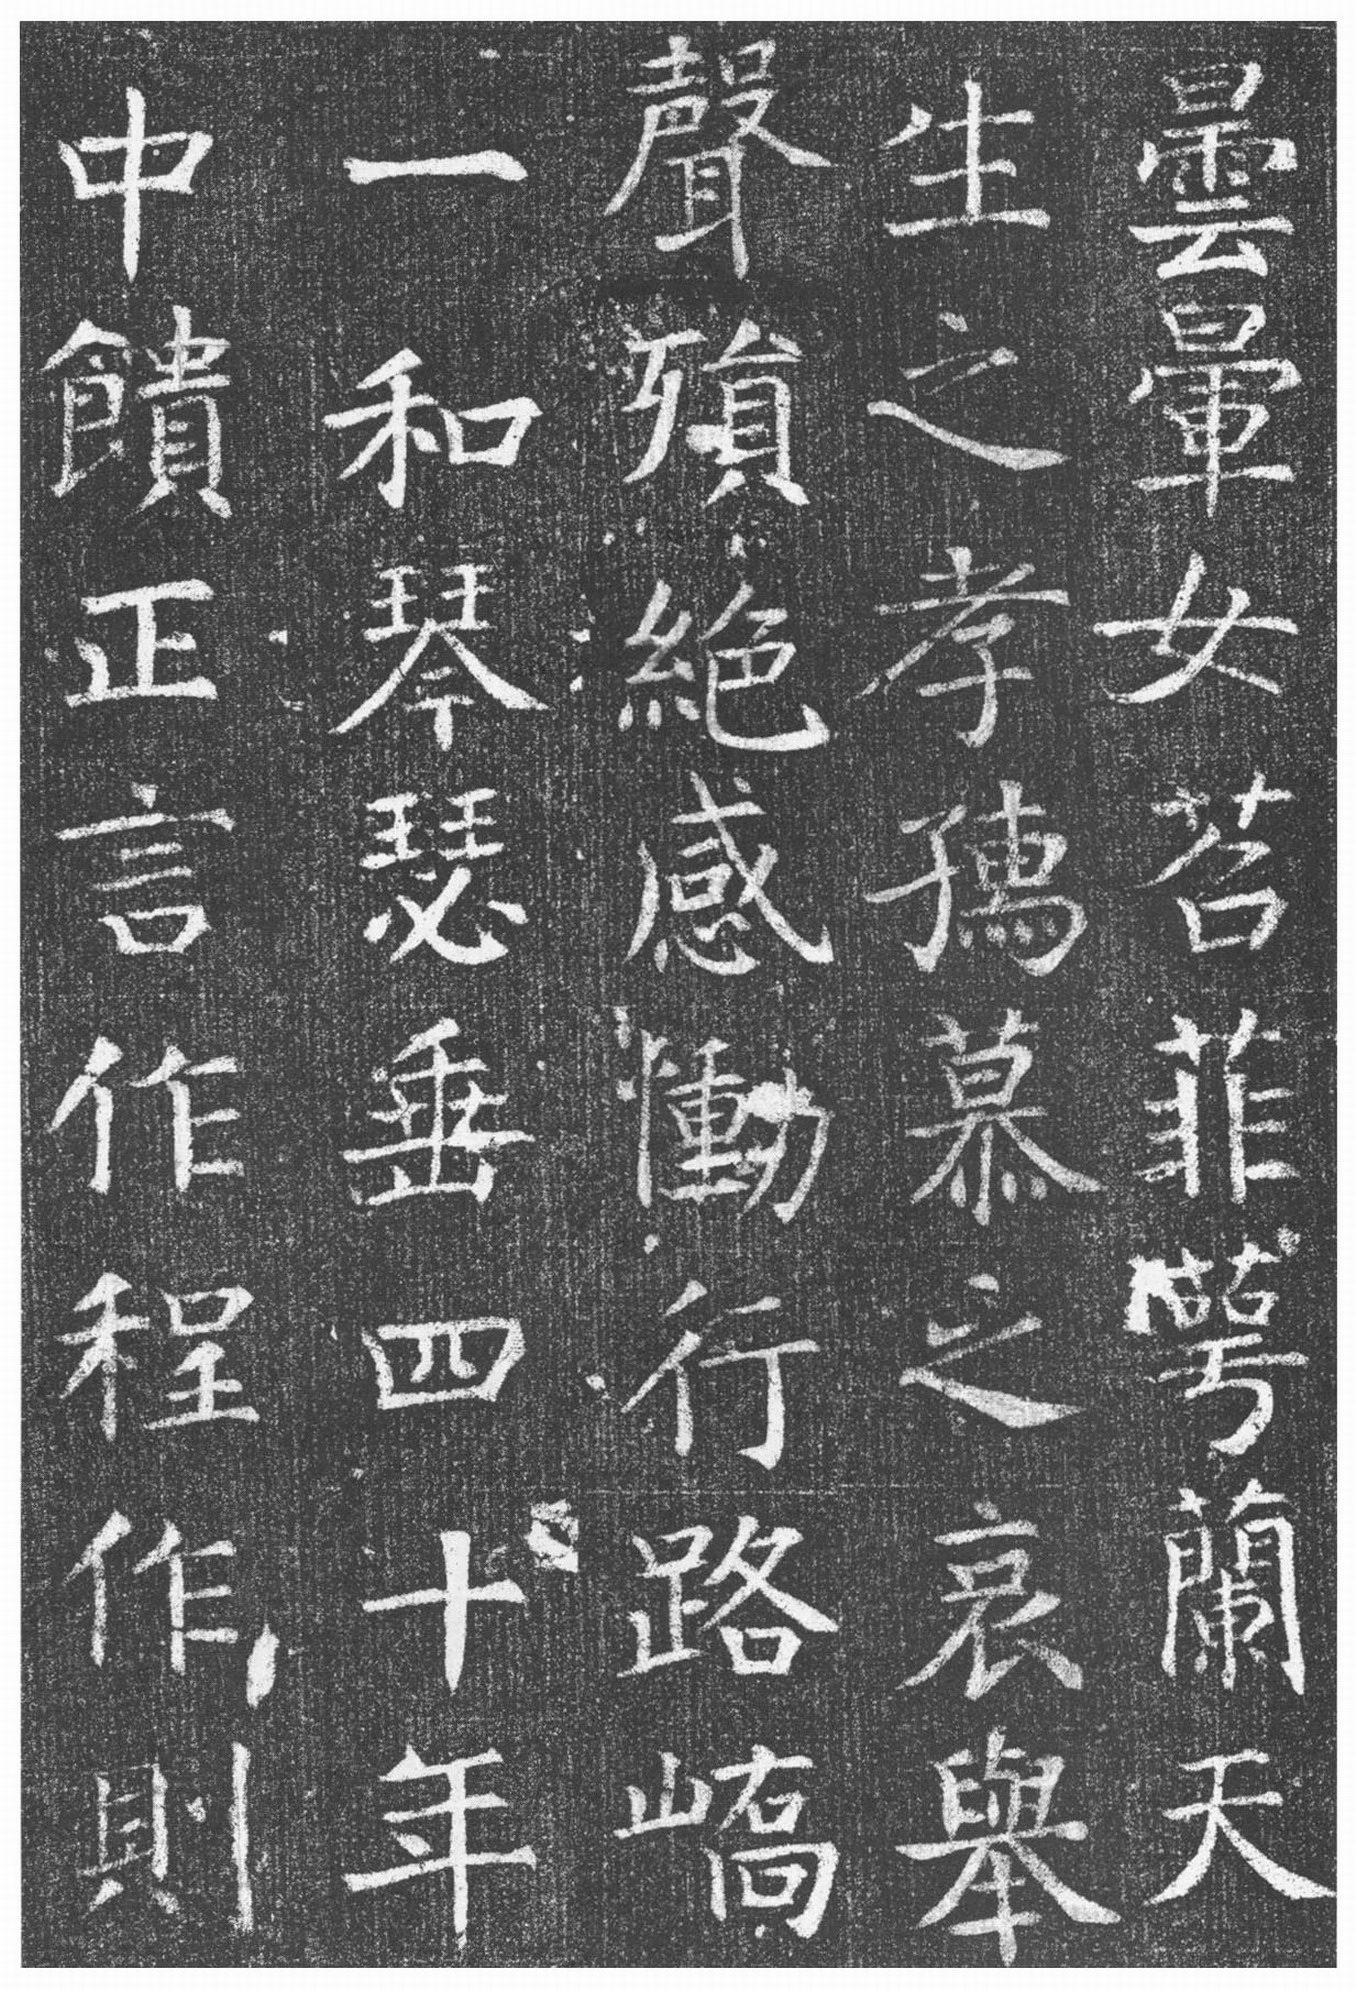 曇暈女苕菲萼蘭天
生之孝孺慕之哀舉
聲殞絶感慟行路嶠
一和琴瑟垂四十年
中饋正言作程作則